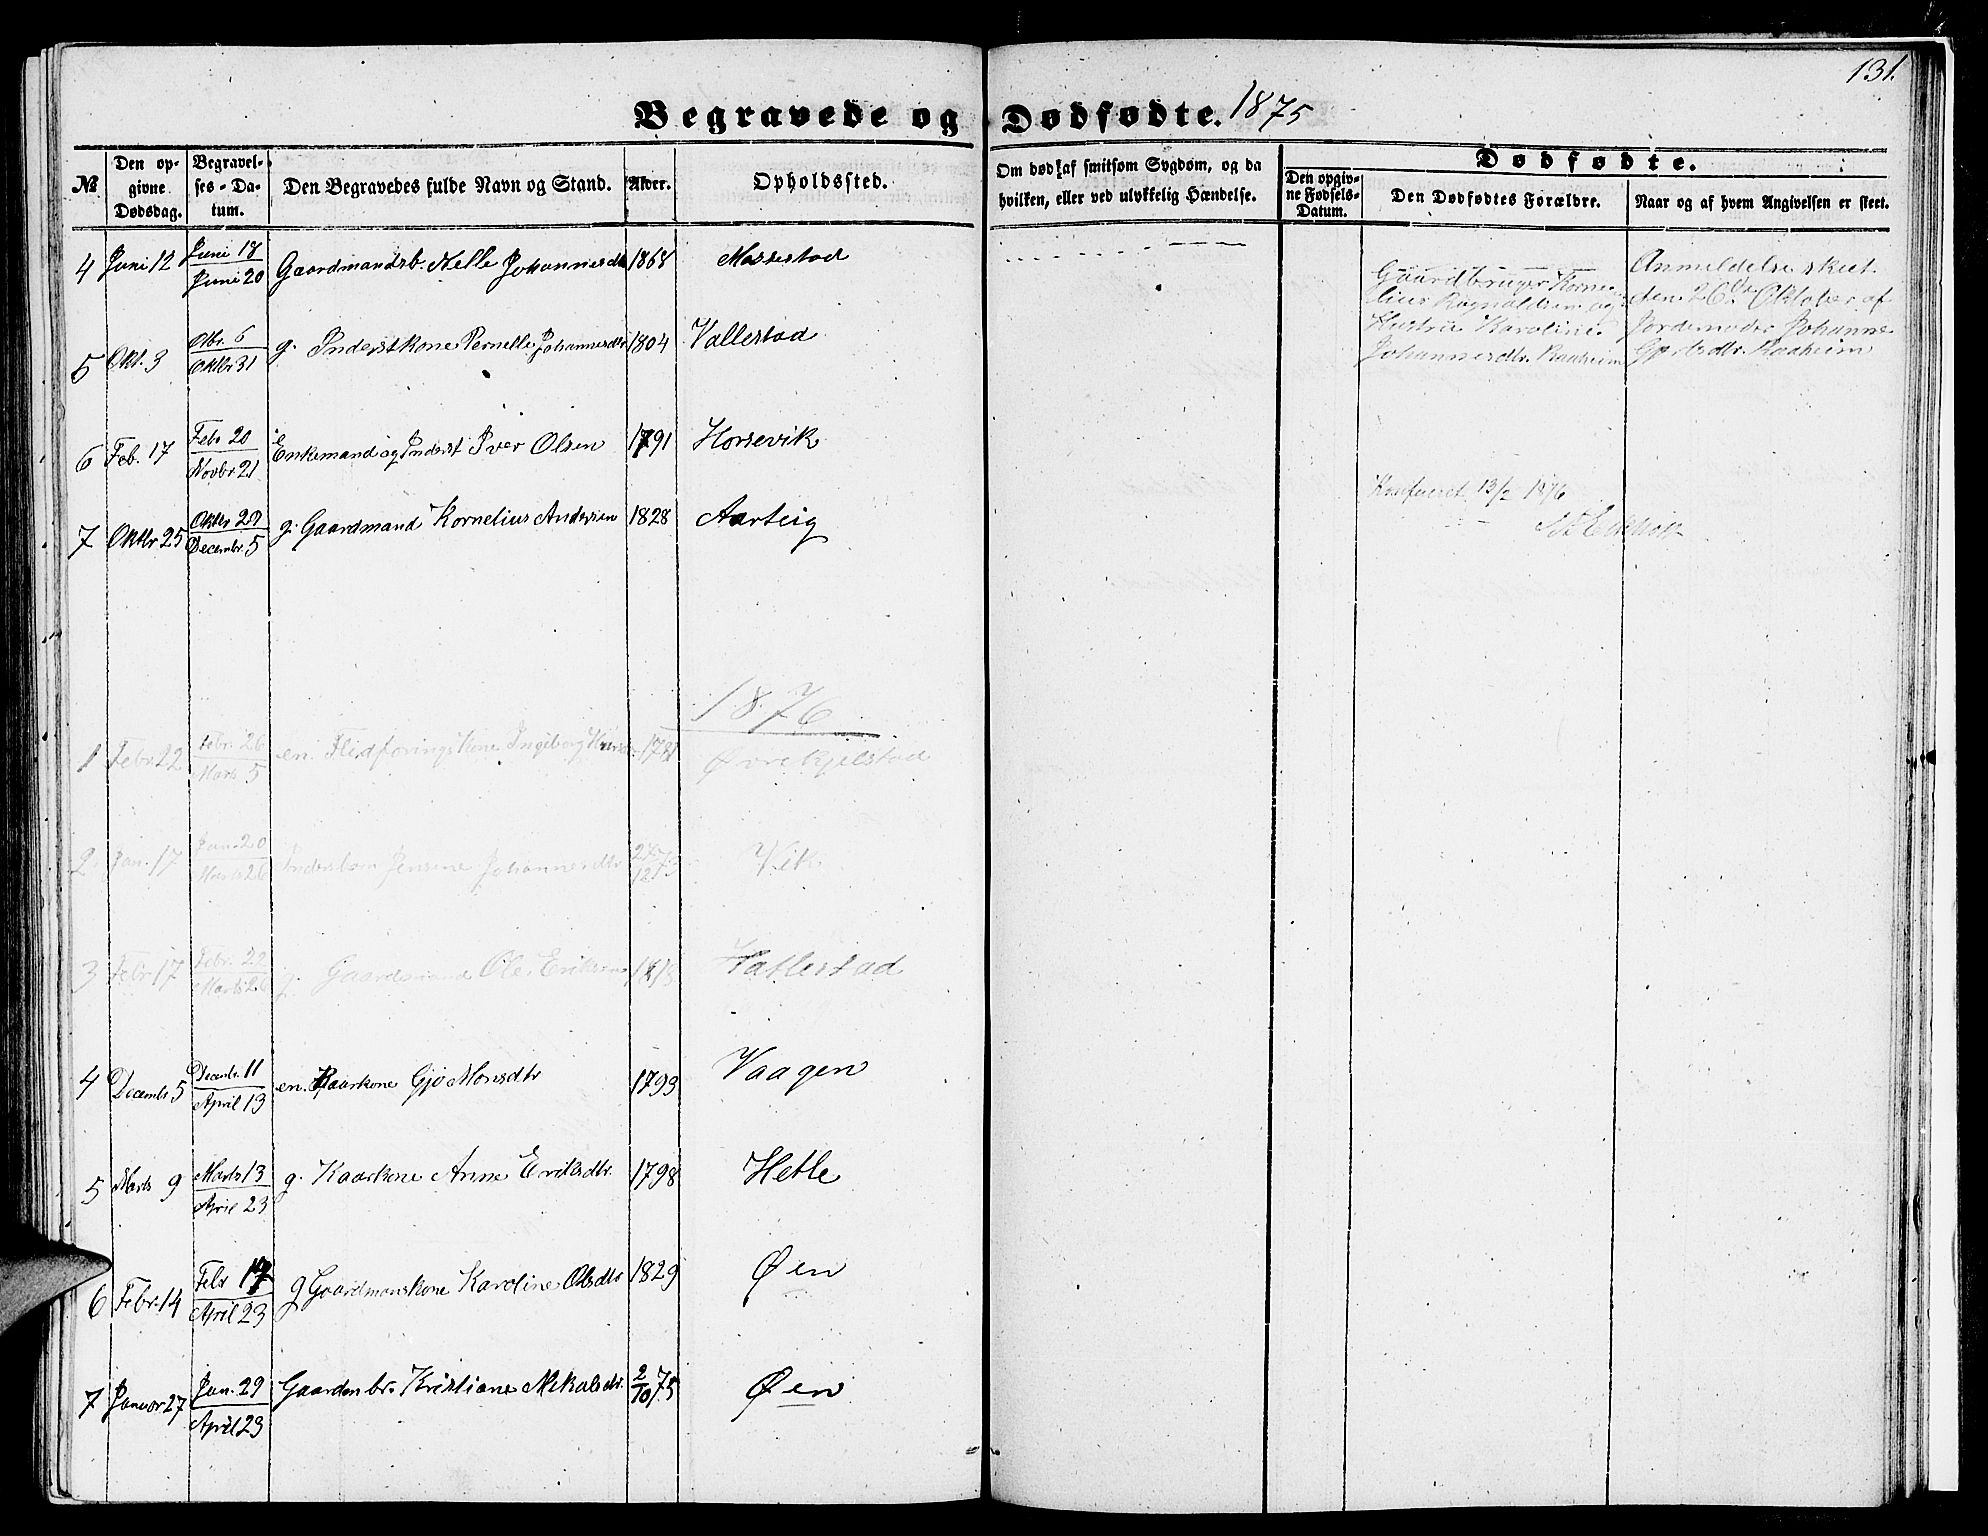 131.
Begravede og Dødfødte. 1875
№
Den op-
givne
Dødsdag.
Begravel-
ses-Da-
tum.
Den Begravedes fulde Navn og Stand.
Alder.
Opholdssted.
Om død af smitsom Sygdom, og da
hvilken, eller ved ulykkelig Hændelse.
Dødfødte.
Den opgiv-
ne Fødsels-
Datum.
Den Dødfødtes Forældre.
Naar og af hvem Angivelsen er skeet.
4 Juni 12 Juni 18 Juni 20 Gaardmandsb. Nelle Johannesdtr 1868 Massestad
5 Okt. 3 Otbr. 6 Oktbr 31 g. Inderstkone Pernelle Johannesdtr 1804 Vallestad
6 Feb. 17 Febr 20 Novbr 21 Enkemand og Inderst Iver Olsen 1791 Horsevik
7 Oktbr 25 Oktbr 29 Decembr. 5 g. Gaardmand Kornelius Andersen 1828 Aarteig
Gaardbruger Korne-
lius Ragnaldsen og
Hustru Karoline
Johannesdtr. Raaheim
Anmeldelse skeet
den 26de Oktober af
Jordemoder Johanne
Gjertsdtr. Raaheim
Konfereret 13/2 1876
1876
1 Febr 22 Febr. 26 Marts 5 en. Flidføringskone Ingeborg 1781 Øvrekjelstad
2 Jan. 17 Jan. 20 Marts 26 Inderstbarn Jensine Johannesdtr 24/12 75 Vik
3 Febr 17 Febr. 22 Marts 26 g. Gaardmand Ole Eriksen 1813 Vallestad
4 Decembr 5 Decembr. 11 April 13 en. Kaarkone Gjø Monsdtr 1793 Vaagen
5 Marts 9 Marts 13 April 23 g. Kaarkone Anne Eriksdtr. 1798 Hetle
6 Febr. 14 Febr 17 April 23 g Gaardmanskone Karoline Olsdtr 1829 Øen
7 Januar 27 Jan. 29 April 23 Gaardmbr. Kristiane Mikalsdtr. 2/10 75 Øen